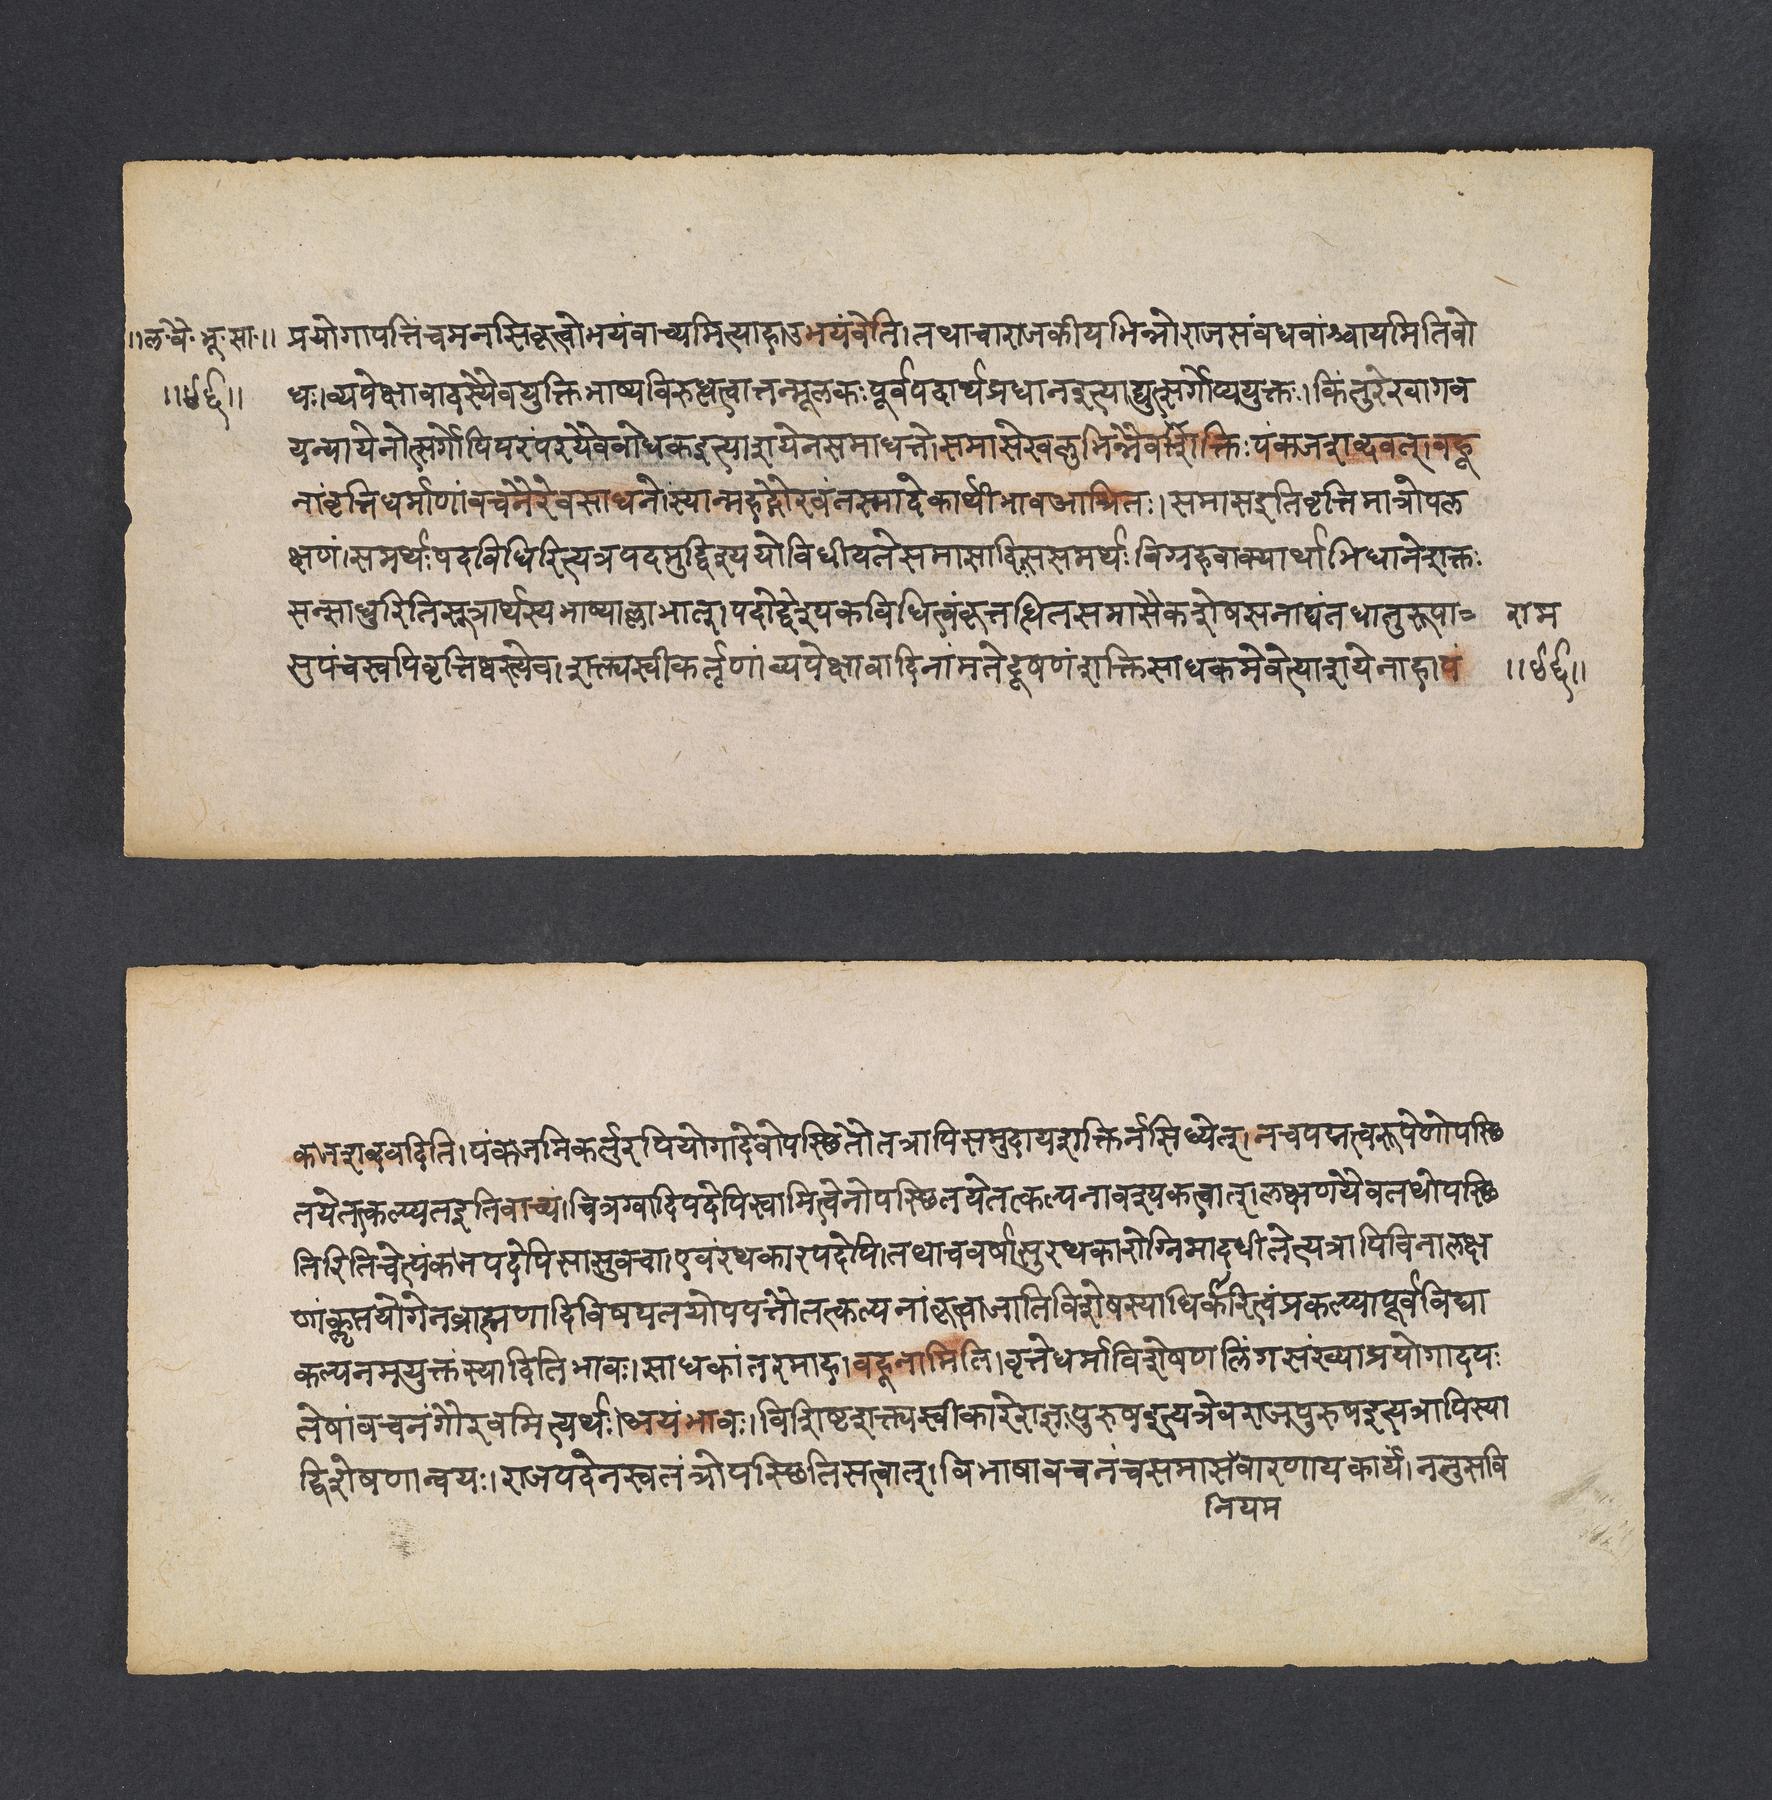 ॥ल॰वै॰भू॰सा॰॥ प्रयोगापत्तिंचमनसिकृत्वोभयंवाच्यमित्याहाउभयंवेति।तथाचाराजकीयभिन्नोराजसंवधवांश्चायमितिवो
॥५६॥ धः।व्यपेक्षावादस्यैवयुक्तिभाष्यविरुद्धत्वात्तन्मूलकःपूर्वपदार्थप्रधानइत्याद्युत्सर्गोप्ययुक्तः।किंतुरेखागव
यन्यायेनोत्सर्गोपिपरंपरयैवबोधकइत्याशयेनसमाधत्ते।समासेखलुभिन्नैवशक्तिःपंकजशब्दवत्।वहू
नांवृत्तिधर्माणांवचनैरेवसाधने।स्यान्महद्गौरवंतस्मादेकार्थीभावआश्रितः।समासइतिवृत्तिमात्रोपल
क्षणं।समर्थःपदविधिरित्यत्रपदमुद्दिश्ययोविधीयतेसमासादिःससमर्थःविग्रहवाक्यार्थाभिधानेशक्तः
सन्साधुरितिसूत्रार्थस्यभाष्याल्लाभात्।पदोद्देश्यकविधित्वंकृत्तद्धितसमासैकशेषसनाद्यंतधातुरूपा॰ राम
सुपंचस्वपिवृत्तिष्वस्त्येव।शक्त्यस्वीकर्तॄणांव्यपेक्षावादिनांमतेदूषणंशक्तिसाधकमेवेत्याशयेनाह।पं ॥५६॥
कजशब्दवदिति।पंकजनिकर्तुरपियोगादेवोपस्छितौतत्रापिसमुदायशक्तिर्नसिध्येत्।नचपद्मत्वरूपेणोपस्छि
तयेतत्कल्प्यतइतिवाच्यं।चित्रग्वादिपदेपिस्वामित्वेनोपस्छितयेतत्कल्पनावश्यकत्वात्।लक्षणयैवतथोपस्छि
तिरितिचेत्पंकजपदेपिसासुवचा।एवंरथकारपदेपि।तथाचवर्षासुरथकारोग्निमादधीतेत्यत्रापिविनालक्ष
णांकॢप्तयोगेनव्राह्मणादिविषयतयोपपत्तौतत्कल्पनांकृत्वाजातिविशेषस्याधिकरित्वंप्रकल्प्यापूर्वविद्या
कल्पनमयुक्तंस्यादितिभावः।साधकांतरमाह।वहूनामिति।वृत्तेधर्माविशेषणलिंगसंख्याप्रयोगादयः
तेषांवचनंगौरवमित्यर्थः।अयंभावः।विशिष्टशक्त्यस्वीकारेराज्ञःपुरुषइत्यत्रेवराजपुरुषइत्यत्रापिस्या
द्विशेषणान्वयः।राजपदेनस्वतंत्रोपस्छितिसत्वात्।विभाषावचनंचसमासेवारणायकार्यं।नतुसवि
नियम